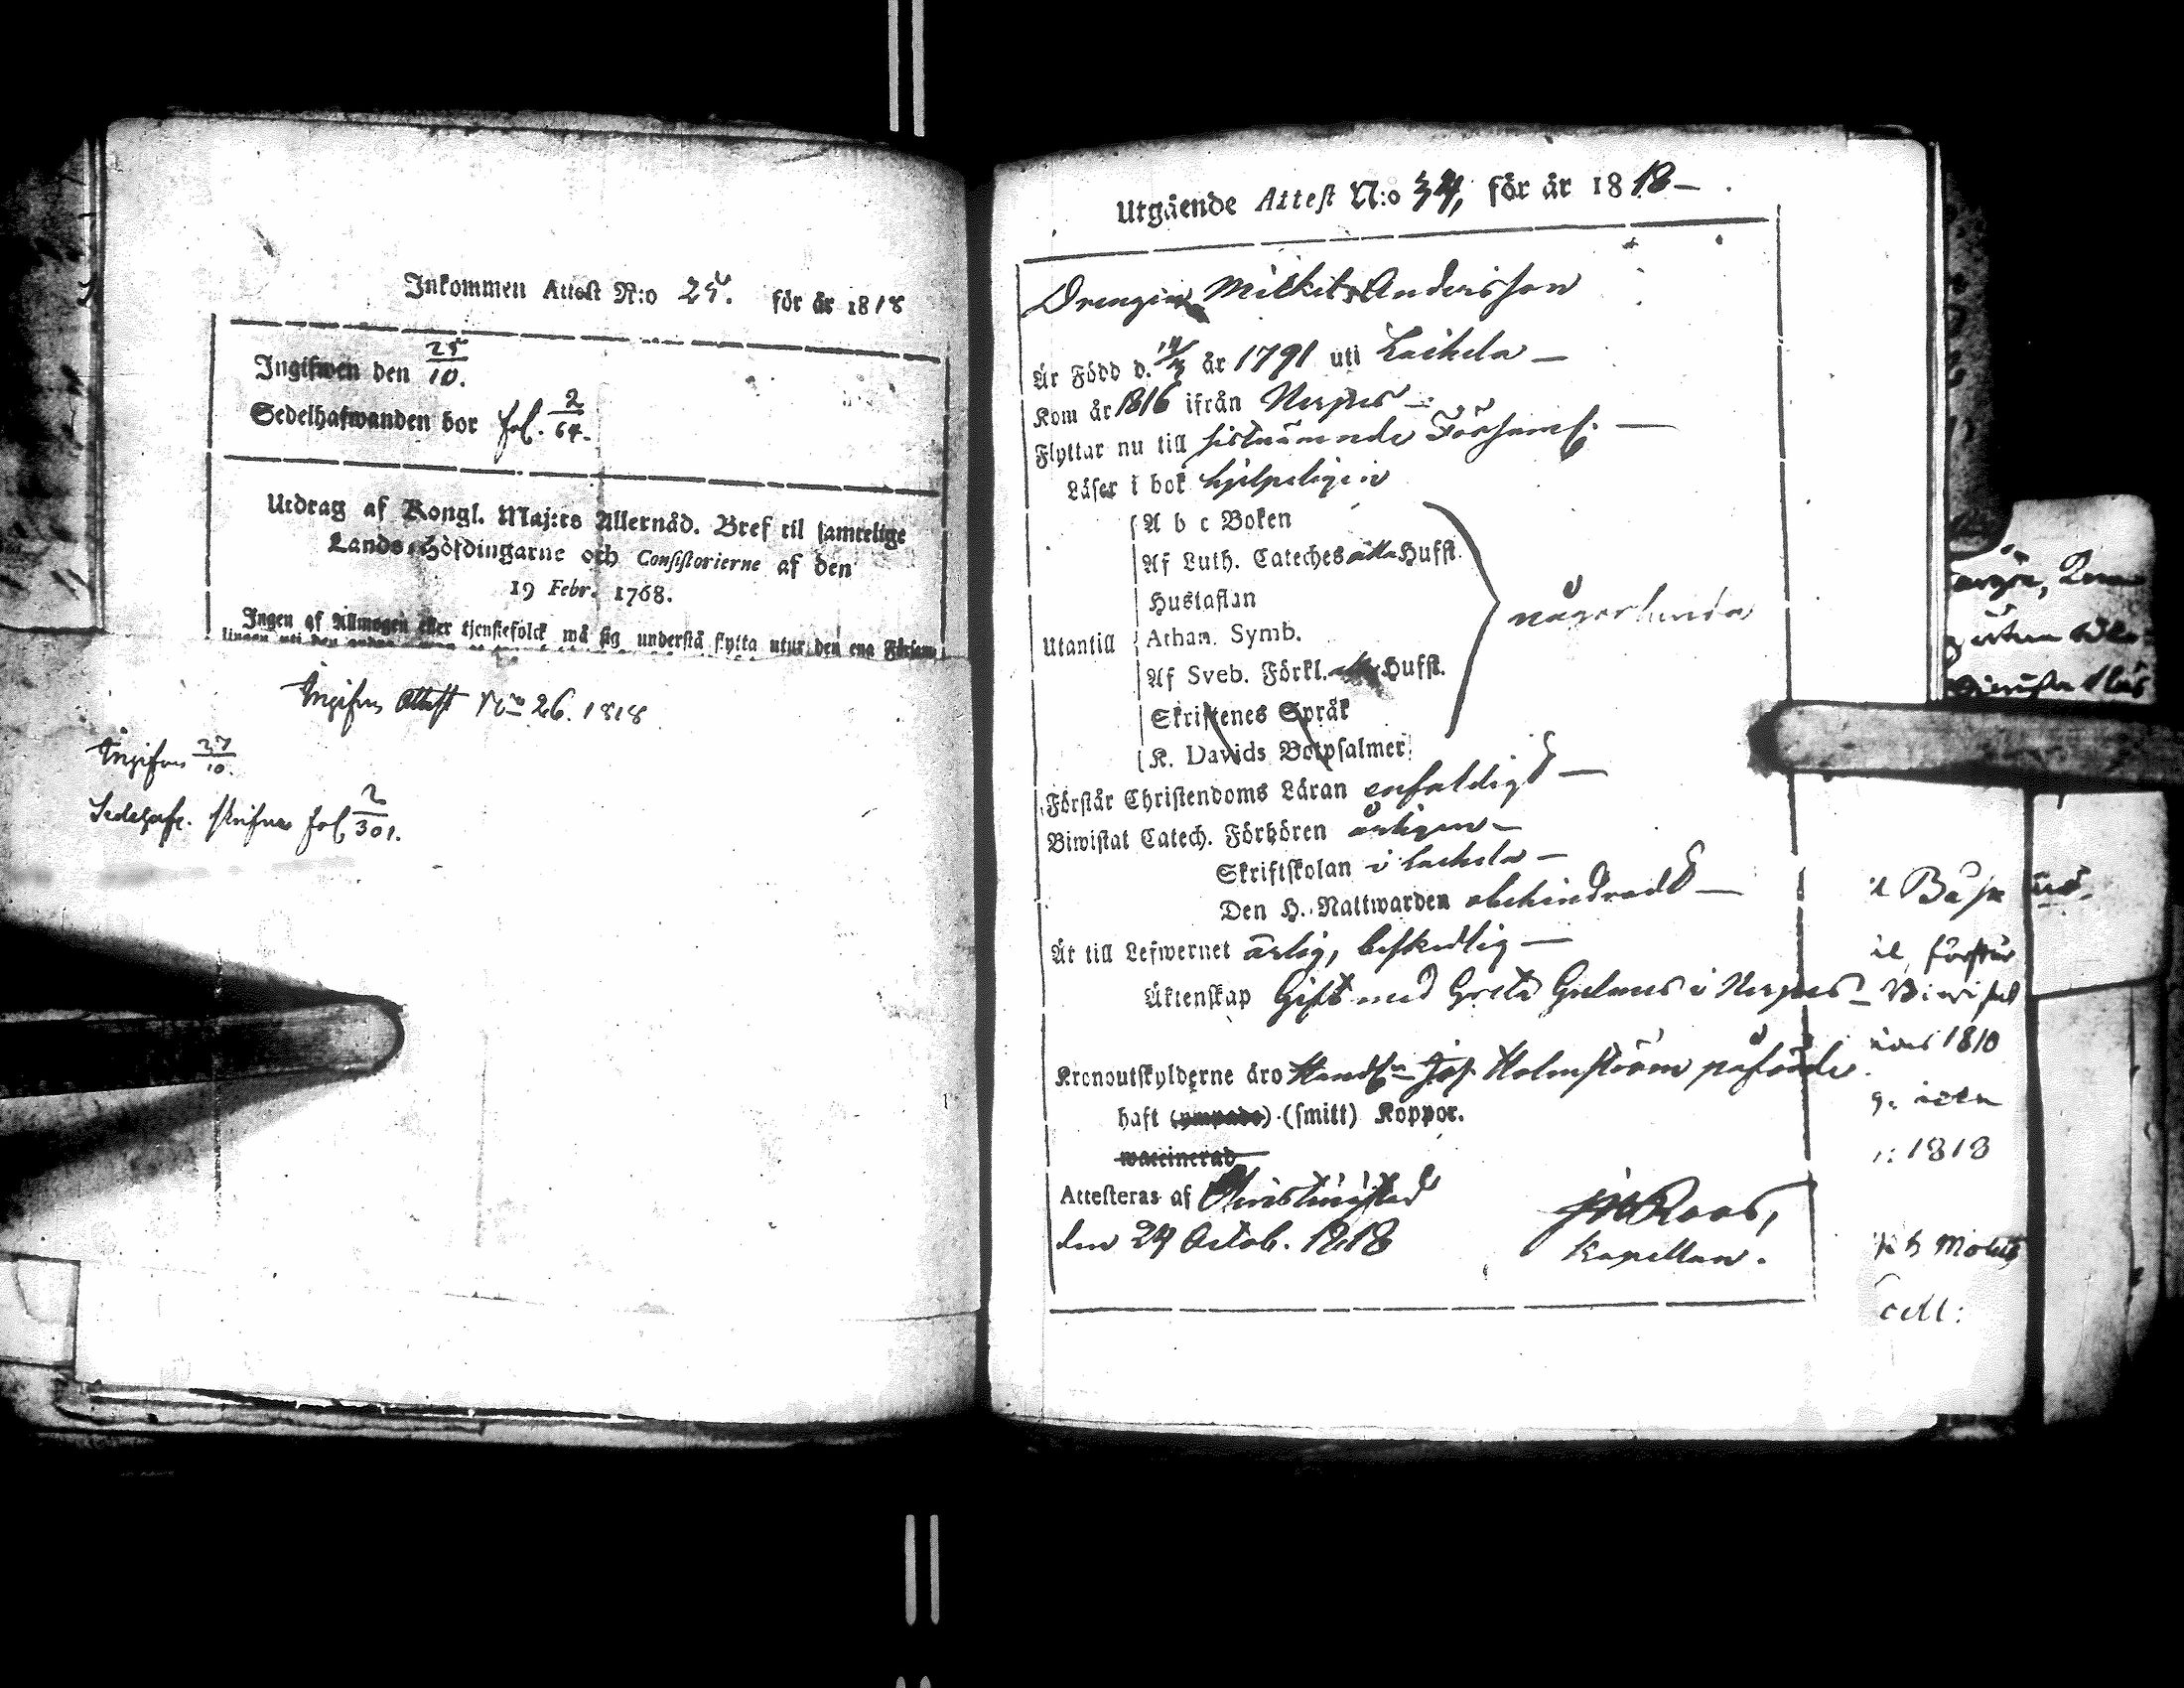 Inkommen Attest N:o 25. för år 1818
Ingifwen den 25/10.
Sedelhafwanden bor fol. 2/64.
Utdrag af Kongl. Maj:ts Allernåd. Bref til samtelige
Lands-Höfdingarne och Consistorierne af den
19 Febr. 1768.
Ingen af Allmogen eller tjenstefolck må sig understå flytta utur den ena Försam-
lingen uti den
Ingifven Attest N:ro 26. 1818
Ingifven 27/10.
Sedelhafv. skrifven fol 2/301.
Utgående Attest N:o 34, för år 1818 –
Drengen Mickel Andersson
Är Född d. år 1791 uti Laihela –
Kom år 1816 ifrån Nerpes –
Flyttar nu till sistnämnde Församl: –
Läser i bok hjelpeligen
Utantill
A b c Boken
Af Luth. Cateches alla Hufst.
Hustaflan
Athan. Symb.
Af Sveb. Förkl. Hufst.
Skriftenes Språk
K. Davids Botpsalmer
någorlunda
Förstår Christendoms Läran enfaldigt –
Biwistat Catech. Förhören årligen –
Skriftskolan i Laihela –
Den H. Nattwarden obehindradt –
Är till Lefwernet ärlig, beskedlig –
Äktenskap Gift med Greta i Nerpes –
Kronoutskylderne äro Handl:n Jos. Holmström påförde.
haft (ympade) (smitt) Koppor.
waccinerad
Attesteras af Christinæstad
den 24 Octob. 1818
Roos,
Kapellan.
förstår
1810
1818